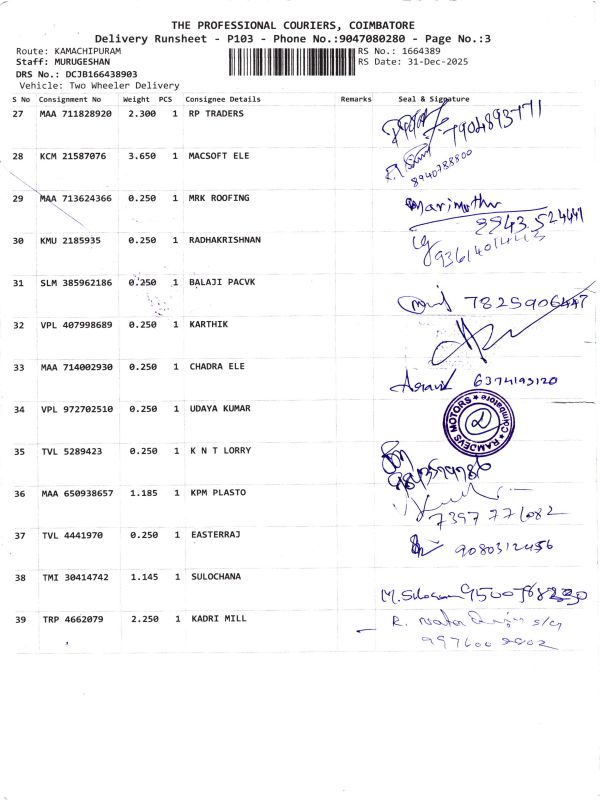 THE PROFESSIONAL COURIERS, COIMBATORE
Delivery Runsheet - P103 - Phone No.:9047080280 - Page No.:3
Route: KAMACHIPURAM RS No.: 1664389
Staff: MURUGESHAN RS Date: 31-Dec-2025
DRS No.: DCJB166438903
Vehicle: Two Wheeler Delivery
S No Consignment No Weight PCS Consignee Details Remarks Seal & Signature
27 MAA 711828920 2.300 1 RP TRADERS 7904893771
28 KCM 21587076 3.650 1 MACSOFT ELE
8940788800
29 MAA 713624366 0.250 1 MRK ROOFING Marimuthu
30 KMU 2185935 0.250 1 RADHAKRISHNAN
31 SLM 385962186 0.250 1 BALAJI PACVK 7825906447
32 VPL 407998689 0.250 1 KARTHIK
33 MAA 714002930 0.250 1 CHADRA ELE 6374193120
34 VPL 972702510 0.250 1 UDAYA KUMAR
RAMDEVS MOTORS Coimbatore
35 TVL 5289423 0.250 1 K N T LORRY
36 MAA 650938657 1.185 1 KPM PLASTO
7397 771082
37 TVL 4441970 0.250 1 EASTERRAJ 9080312456
38 TMI 30414742 1.145 1 SULOCHANA
39 TRP 4662079 2.250 1 KADRI MILL